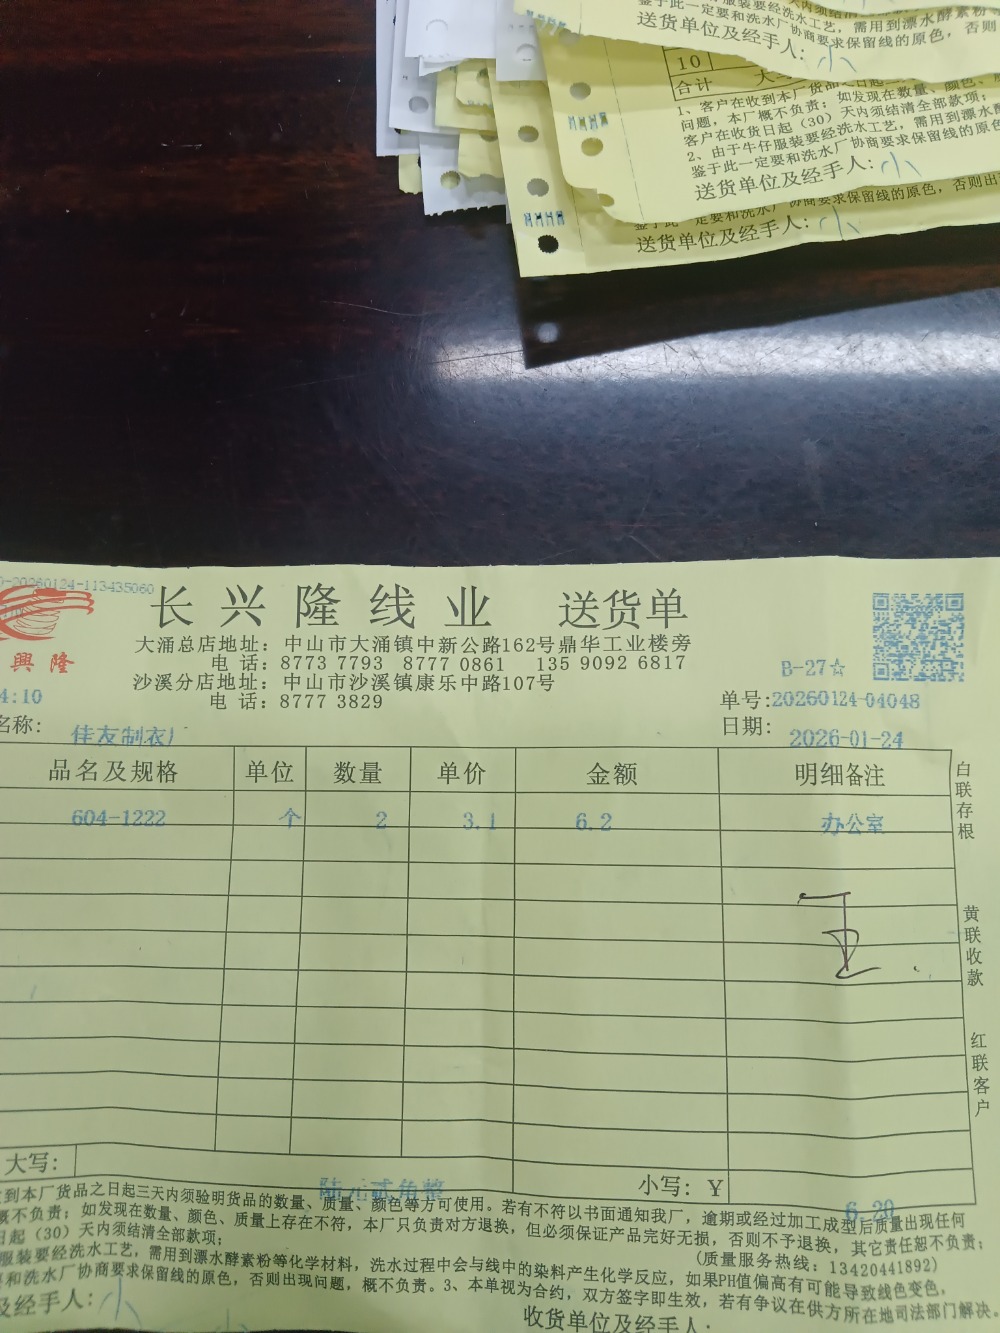 服装要经洗水工艺，需用到漂水酵素粉
鉴于此一定要和洗水厂协商要求保留线的原色，否则
送货单位及经手人：小
10
合计
1、客户在收到本厂货品之日起三
问题，本厂概不负责；如发现在数量、颜色、
客户在收货日起（30）天内须结清全部款项；
2、由于牛仔服装要经洗水工艺，需用到漂水
鉴于此一定要和洗水厂协商要求保留线的原色
送货单位及经手人：小
鉴于此一定要和洗水厂协商要求保留线的原色，否则出
送货单位及经手人：小
-20260124-113435060
長興隆线业 送货单
興隆
大涌总店地址：中山市大涌镇中新公路162号鼎华工业楼旁
电 话：8773 7793 8777 0861 135 9092 6817
沙溪分店地址：中山市沙溪镇康乐中路107号
电 话：8777 3829
B-27☆
4:10
单号:20260124-04048
名称： 佳友制衣厂
日期： 2026-01-24
品名及规格 单位 数量 单价 金额 明细备注
604-1222 个 2 3.1 6.2 办公室
白联存根
黄联收款
红联客户
大写： 陆元贰角整 小写：￥ 6.20
到本厂货品之日起三天内须验明货品的数量、质量、颜色等方可使用。若有不符以书面通知我厂，逾期或经过加工成型后质量出现任何
概不负责；如发现在数量、颜色、质量上存在不符，本厂只负责对方退换，但必须保证产品完好无损，否则不予退换，其它责任恕不负责；
日起（30）天内须结清全部款项； (质量服务热线：13420441892)
服装要经洗水工艺，需用到漂水酵素粉等化学材料，洗水过程中会与线中的染料产生化学反应，如果PH值偏高有可能导致线色变色，
和洗水厂协商要求保留线的原色，否则出现问题，概不负责。3、本单视为合约，双方签字即生效，若有争议在供方所在地司法部门解决。
及经手人：小
收货单位及经手人：